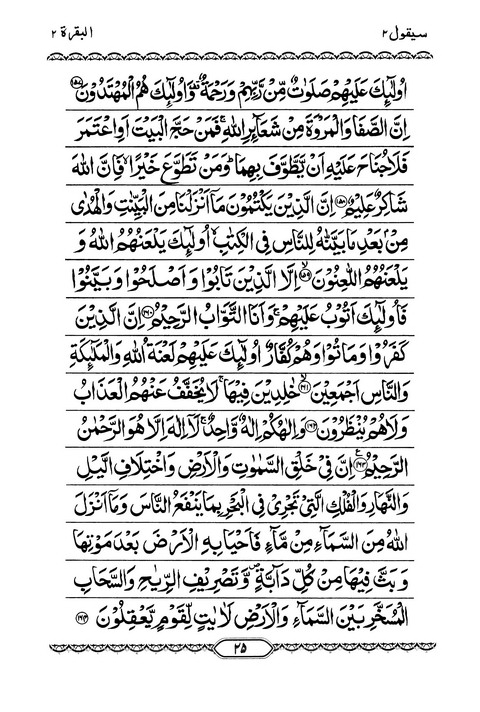 سيقول ٢
البقرة ٢
اُولٰٓئِكَ عَلَيْهِمْ صَلَوٰتٌ مِّنْ رَّبِّهِمْ وَرَحْمَةٌ ۟ وَاُولٰٓئِكَ هُمُ الْمُهْتَدُوْنَ ﴿۱۵۷﴾
اِنَّ الصَّفَا وَالْمَرْوَةَ مِنْ شَعَآئِرِ اللّٰهِ ۚ فَمَنْ حَجَّ الْبَيْتَ اَوِ اعْتَمَرَ
فَلَا جُنَاحَ عَلَيْهِ اَنْ يَّطَّوَّفَ بِهِمَا ؕ وَمَنْ تَطَوَّعَ خَيْرًا ۙ فَاِنَّ اللّٰهَ
شَاكِرٌ عَلِيْمٌ ﴿۱۵۸﴾ اِنَّ الَّذِيْنَ يَكْتُمُوْنَ مَآ اَنْزَلْنَا مِنَ الْبَيِّنٰتِ وَالْهُدٰى
مِنْۢ بَعْدِ مَا بَيَّنّٰهُ لِلنَّاسِ فِى الْكِتٰبِ ۙ اُولٰٓئِكَ يَلْعَنُهُمُ اللّٰهُ وَ
يَلْعَنُهُمُ اللّٰعِنُوْنَ ﴿۱۵۹﴾ اِلَّا الَّذِيْنَ تَابُوْا وَ اَصْلَحُوْا وَ بَيَّنُوْا
فَاُولٰٓئِكَ اَتُوْبُ عَلَيْهِمْ ۚ وَ اَنَا التَّوَّابُ الرَّحِيْمُ ﴿۱۶۰﴾ اِنَّ الَّذِيْنَ
كَفَرُوْا وَ مَاتُوْا وَهُمْ كُفَّارٌ اُولٰٓئِكَ عَلَيْهِمْ لَعْنَةُ اللّٰهِ وَالْمَلٰٓئِكَةِ
وَالنَّاسِ اَجْمَعِيْنَ ﴿۱۶۱﴾ خٰلِدِيْنَ فِيْهَا ۚ لَا يُخَفَّفُ عَنْهُمُ الْعَذَابُ
وَلَا هُمْ يُنْظَرُوْنَ ﴿۱۶۲﴾ وَاِلٰهُكُمْ اِلٰهٌ وَّاحِدٌ ۚ لَآ اِلٰهَ اِلَّا هُوَ الرَّحْمٰنُ
الرَّحِيْمُ ﴿۱۶۳﴾ اِنَّ فِىْ خَلْقِ السَّمٰوٰتِ وَالْاَرْضِ وَاخْتِلَافِ الَّيْلِ
وَالنَّهَارِ وَالْفُلْكِ الَّتِىْ تَجْرِىْ فِى الْبَحْرِ بِمَا يَنْفَعُ النَّاسَ وَمَآ اَنْزَلَ
اللّٰهُ مِنَ السَّمَآءِ مِنْ مَّآءٍ فَاَحْيَا بِهِ الْاَرْضَ بَعْدَ مَوْتِهَا
وَ بَثَّ فِيْهَا مِنْ كُلِّ دَآبَّةٍ ۪ وَّ تَصْرِيْفِ الرِّيٰحِ وَالسَّحَابِ
الْمُسَخَّرِ بَيْنَ السَّمَآءِ وَالْاَرْضِ لَاٰيٰتٍ لِّقَوْمٍ يَّعْقِلُوْنَ ﴿۱۶۴﴾
۲۵